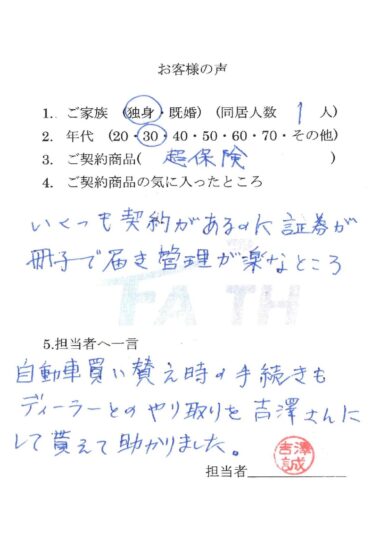 お客様の声
1. ご家族 (独身・既婚) (同居人数 1 人)
2. 年代 (20・30・40・50・60・70・その他)
3. ご契約商品( 超保険 )
4. ご契約商品の気に入ったところ
いくつも契約があるのに証券が
冊子で届き管理が楽なところ
FAITH
5.担当者へ一言
自動車買い賛え時の手続きも
ディーラーとのやり取りを吉澤さんに
して貰えて助かりました。
吉澤
誠
担当者